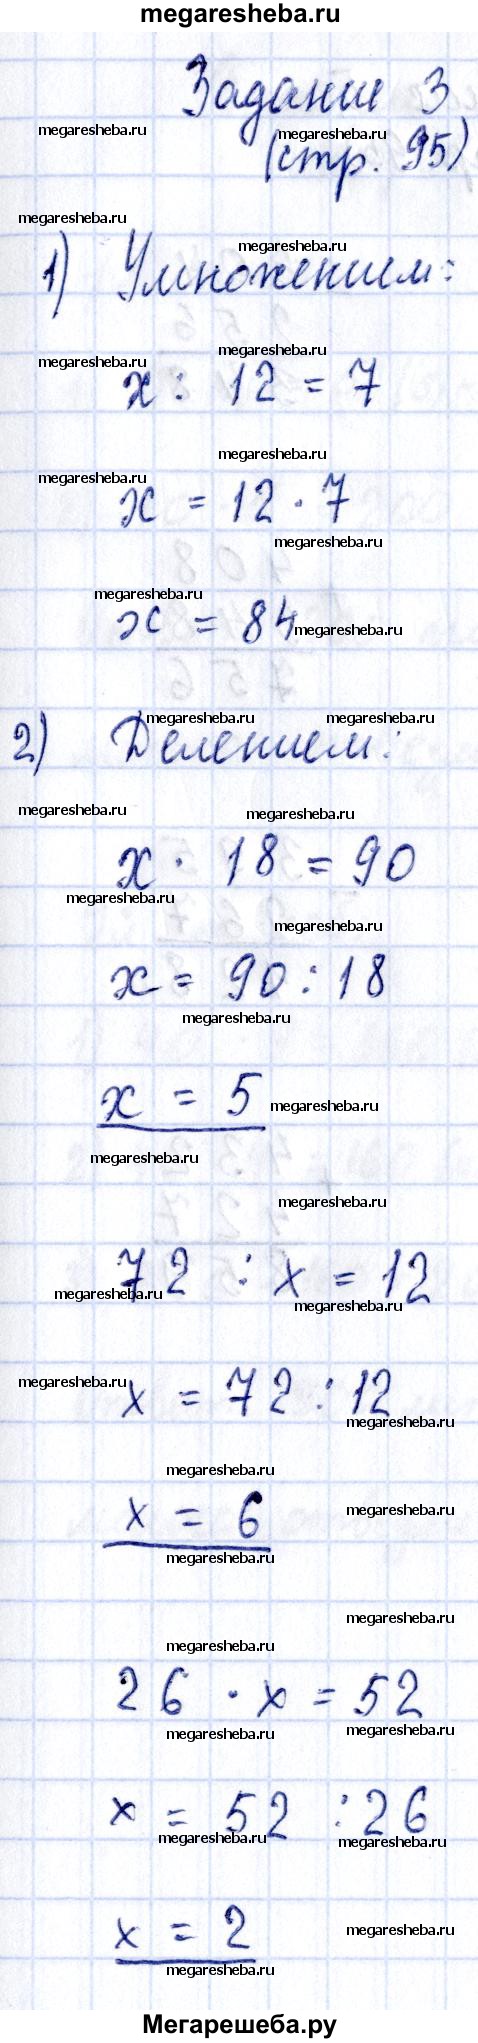 megaresheba.ru
Задание 3
megaresheba.ru megaresheba.ru
(стр. 95)
megaresheba.ru
megaresheba.ru
1) Умножением:
megaresheba.ru megaresheba.ru
x : 12 = 7
megaresheba.ru
megaresheba.ru
x = 12 · 7
megaresheba.ru
megaresheba.ru
x = 84
megaresheba.ru
megaresheba.ru megaresheba.ru
2) Делением:
megaresheba.ru megaresheba.ru
x · 18 = 90
megaresheba.ru
megaresheba.ru
x = 90 : 18
megaresheba.ru
x = 5
megaresheba.ru
megaresheba.ru
megaresheba.ru
72 : x = 12
megaresheba.ru
megaresheba.ru
megaresheba.ru
x = 72 : 12
megaresheba.ru
megaresheba.ru
x = 6
megaresheba.ru
megaresheba.ru
megaresheba.ru
megaresheba.ru
26 · x = 52
megaresheba.ru megaresheba.ru
x = 52 : 26
megaresheba.ru megaresheba.ru
x = 2
megaresheba.ru
megaresheba.ru
Мегарешеба.ру